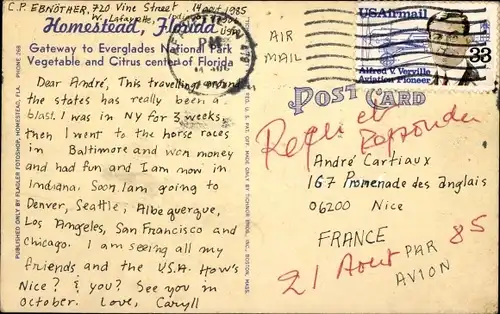 C.P. EBNÖTHER, 720 Vine Street 14 août 1985
W. Lafayette, Indiana
USA
Homestead, Florida
Gateway to Everglades National Park
Vegetable and Citrus center of Florida
Dear André, This travelling around
the states has really been a
blast. I was in NY for 3 weeks,
then I went to the horse races
in Baltimore and won money
and had fun and I am now in
Indiana. Soon I am going to
Denver, Seattle, Albequerque,
Los Angeles, San Francisco and
Chicago. I am seeing all my
friends and the U.S.A. How's
Nice? & you? See you in
October. Love, Caryll
PUBLISHED ONLY BY FLAGLER FOTOSHOP, HOMESTEAD, FLA. PHONE 268
REG. U.S. PAT. OFF. MADE ONLY BY TICHNOR BROS., INC., BOSTON, MASS.
PM
AIR
MAIL
USAirmail
Alfred V. Verville
Aviation Pioneer
33
POST CARD
Reçu et
Répondu
André Cartiaux
167 Promenade des anglais
06200 Nice
FRANCE
PAR
AVION
21 Aout 85